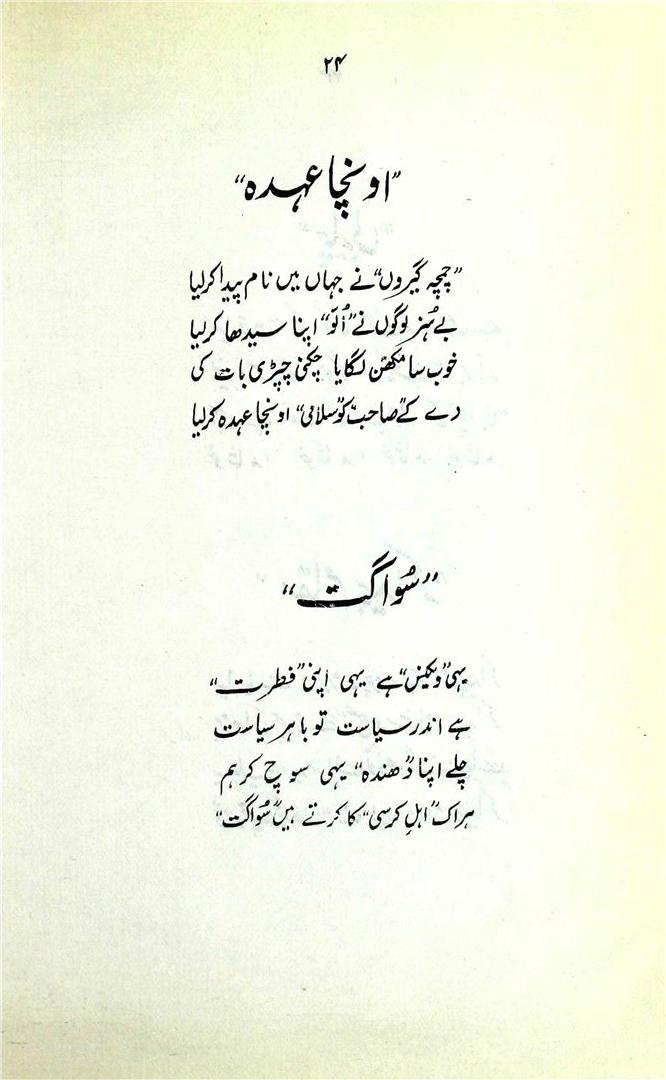 ۲۴
"اونچا عہدہ"
"چمچہ گیروں" نے جہاں میں نام پیدا کرلیا
بے ہُنر لوگوں نے "اُلّو" اپنا سیدھا کرلیا
خوب سا مکھّن لگایا چکنی چپڑی بات کی
دے کے "صاحب" کو "سلامی" اونچا عہدہ کرلیا
"سُواگت"
یہی "ویکنس" ہے یہی اپنی "فطرت"
ہے اندر سیاست تو باہر سیاست
چلے اپنا "دھندہ" یہی سوچ کر ہم
ہر اک "اہلِ کرسی" کا کرتے ہیں "سُواگت"